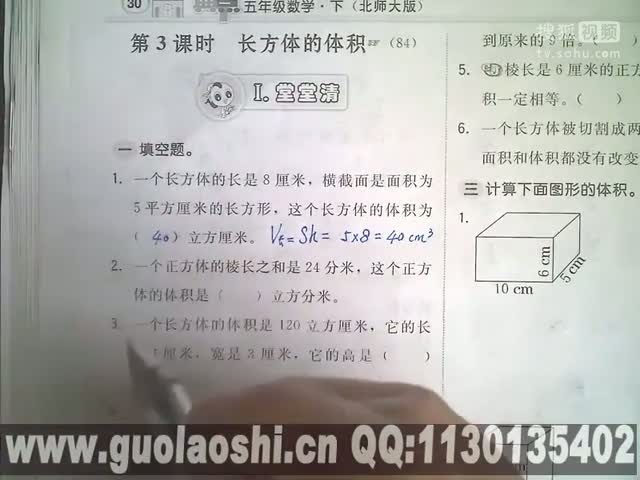 30
五年级数学·下(北师大版)
第3课时 长方体的体积 (84)
Ⅰ.堂堂清
一 填空题。
1. 一个长方体的长是8厘米，横截面是面积为
5平方厘米的长方形，这个长方体的体积为
( 40 )立方厘米。 V长=Sh= 5×8=40cm³
2. 一个正方体的棱长之和是24分米，这个正方
体的体积是( )立方分米。
3. 一个长方体的体积是120立方厘米，它的长
厘米，宽是3厘米，它的高是( )
到原来的9倍。( )
5. 棱长是6厘米的正方
积一定相等。( )
6. 一个长方体被切割成两
面积和体积都没有改变
三 计算下面图形的体积。
1.
6 cm
5 cm
10 cm
搜狐视频
tv.sohu.com
www.guolaoshi.cn QQ:1130135402